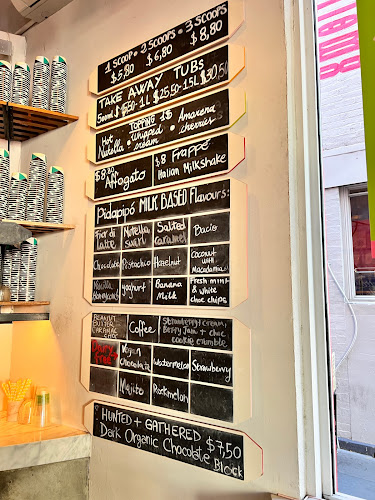 1 SCOOP • 2 SCOOPS • 3 SCOOPS
$5,80 $6,80 $8,80
TAKE AWAY TUBS
500ml $16,50 - 1L $25,50 - 1.5L $30,50
TOPPING 1$
Hot Nutella • Whipped cream • Amarena cherries
$8,80 Affogato
$8 Frappé
Italian Milkshake
Pidapipó MILK BASED Flavours:
Fior di latte
Nutella swirl
Salted caramel
Bacio
Chocolate
Pistachio
Hazelnut
Coconut with Macadamia
Vanilla
yoghurt
Banana Milk
Fresh mint & white choc chips
PEANUT BUTTER CARAMEL
Coffee
Strawberry cream, Berry Jam + choc cookie crumble
Dairy free
Vegan chocolate
Watermelon
Strawberry
Mojito
Rockmelon
HUNTED + GATHERED $7,50
Dark Organic Chocolate Block